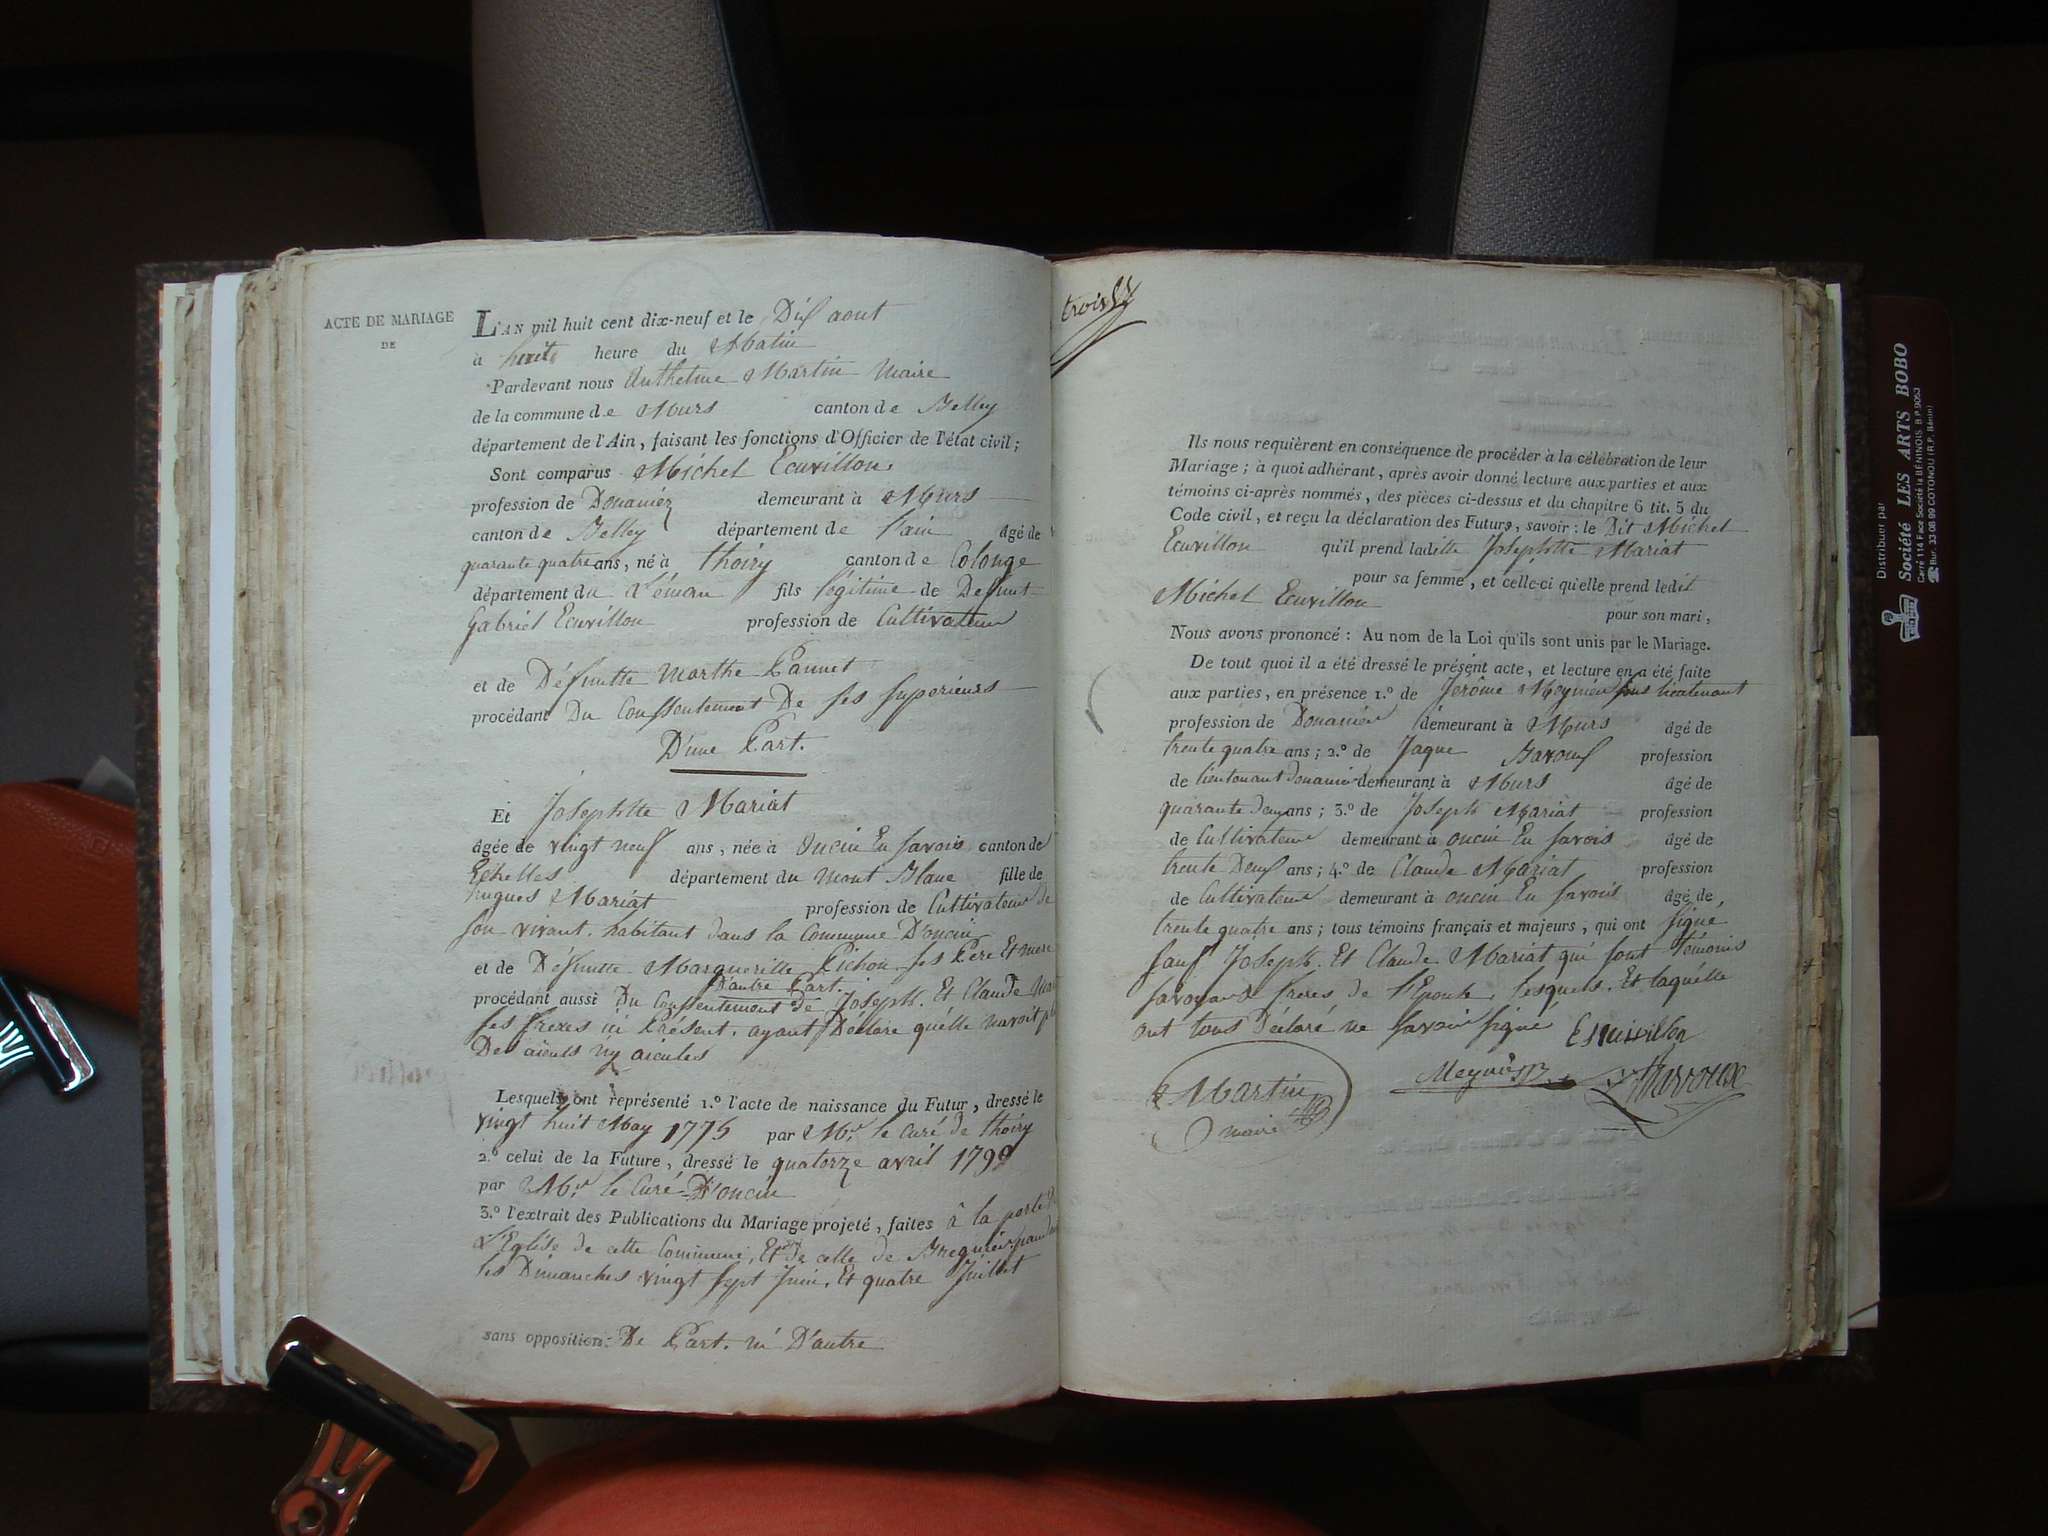 ACTE DE MARIAGE
DE
L'AN mil huit cent dix-neuf et le Dix aout
à huit heure du Matin
Pardevant nous Anthelme Martin Maire
de la commune de Murs canton de Belley
département de l'Ain, faisant les fonctions d'Officier de l'état civil;
Sont comparus Michel Ecuvillon
profession de Douanier demeurant à Murs
canton de Belley département de l'ain âgé de
quarante quatre ans, né à thoiry canton de Colonge
département du Léman fils légitime de Defunt
Gabriel Ecuvillon profession de Cultivateur
et de Défunte Marthe Pannet
procédant Du Conssentement De ses superieurs
D'une Part.
Et Josephtte Mariat
âgée de vingt neuf ans, née à oncin En savois canton de
Echelles département du Mont Blanc fille de
hugues Mariat profession de Cultivateur de
son vivant, habitant dans la Commune D'oncin
et de Défunte Margueritte Pichon ses Pere Et mere
D'autre Part.
procédant aussi Du Conssentement de Joseph. Et Claude
ses freres ici Présent, ayant Déclaré qu'elle navoit
Des aieuls ny aieules
Lesquels ont représenté 1.º l'acte de naissance du Futur, dressé le
vingt huit May 1775 par Mr. le Curé de thoiry
2.º celui de la Future, dressé le quatorze avril 1790
par Mr. le Curé D'oncin
3.º l'extrait des Publications du Mariage projeté, faites à la porte
L'Eglise de cette Commune, Et de celle de
les Dimanches vingt sept Juin, Et quatre Juillet
sans opposition De Part. ni D'autre
trois
Ils nous requièrent en conséquence de procéder à la célébration de leur
Mariage; à quoi adhérant, après avoir donné lecture aux parties et aux
témoins ci-après nommés, des pièces ci-dessus et du chapitre 6 tit. 5 du
Code civil, et reçu la déclaration des Futurs, savoir: le Dit Michel
Ecuvillon qu'il prend laditte Josephtte Mariat
pour sa femme, et celle-ci qu'elle prend ledit
Michel Ecuvillon
pour son mari,
Nous avons prononcé: Au nom de la Loi qu'ils sont unis par le Mariage.
De tout quoi il a été dressé le présent acte, et lecture en a été faite
aux parties, en présence 1.º de Jerôme Meynier sous lieutenant
profession de Douanier demeurant à Murs âgé de
trente quatre ans; 2.º de Jaque Baroux profession
de lieutenant Douanier demeurant à Murs âgé de
quarante deux ans; 3.º de Joseph Mariat profession
de Cultivateur demeurant à oncin En savois âgé de
trente Deux ans; 4.º de Claude Mariat profession
de Cultivateur demeurant à oncin En savois âgé de
trente quatre ans; tous témoins français et majeurs, qui ont signé
sauf Joseph. Et Claude Mariat qui sont témoins
savoyards freres de l'Epouse, lesquels. Et laquelle
ont tous Déclaré ne savoir signé
Martin
maire
Distribuer par
Société LES ARTS BOBO
Carré 114 Face Société la BÉNINOIS B.P. 9053
Bur. 33 08 99 COTONOU (R.P. Bénin)